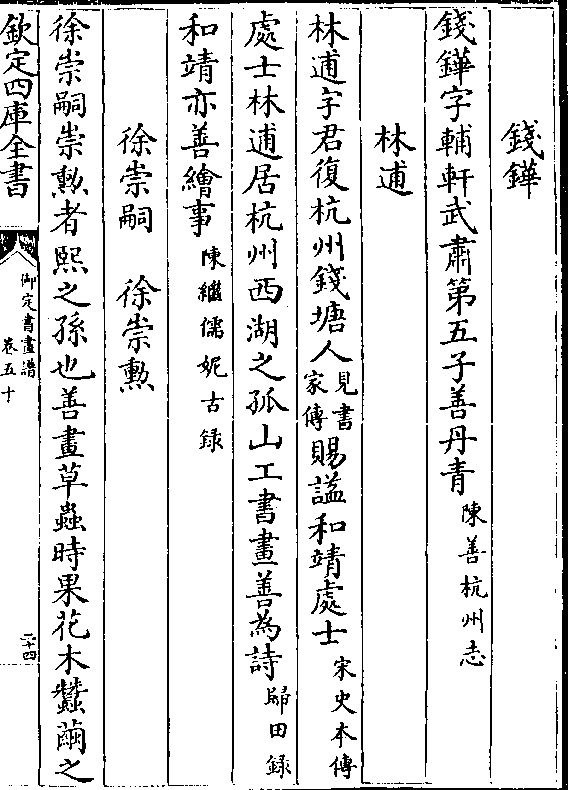 錢鏵
錢鏵字輔軒武肅第五子善丹青陳善杭州志
林逋
林逋字君復杭州錢塘人見書家傳賜謚和靖處士宋史本傳
處士林逋居杭州西湖之孤山工書畫善為詩歸田錄
和靖亦善繪事陳繼儒妮古録
徐崇嗣　徐崇勲
徐崇嗣崇勲者熙之孫也善畫草蟲時果花木蠶繭之
欽定四庫全書
御定書畫譜
卷五十
二十四